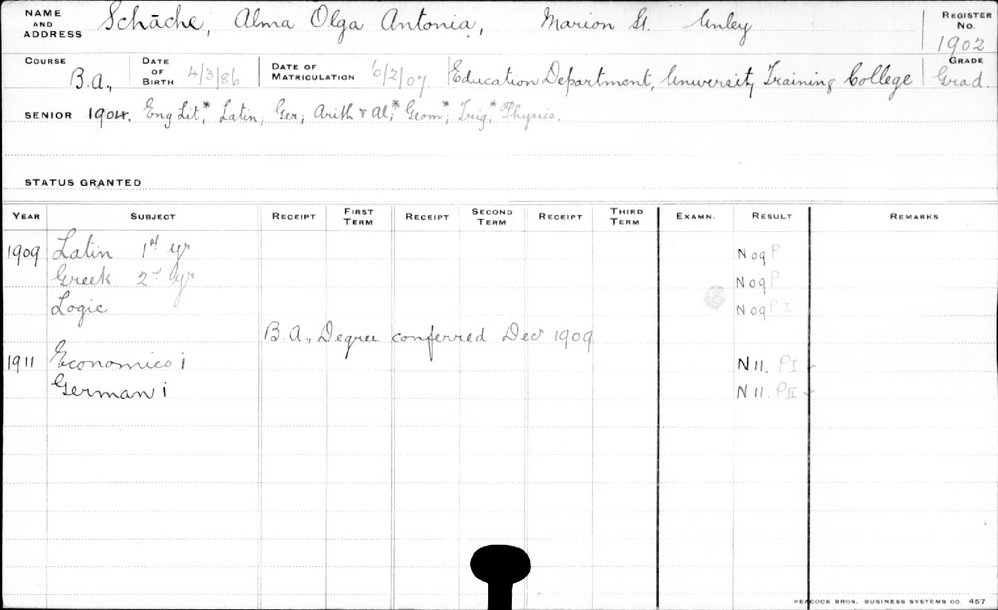 NAME AND ADDRESS Schäche, Alma Olga Antonia, Marion St. Unley REGISTER No. 1902
COURSE B.A., DATE OF BIRTH 4/3/86 DATE OF MATRICULATION 6/2/07 Education Department, University Training College GRADE Grad.
SENIOR 1904. Eng Lit*, Latin, Ger; Arith & Al*; Geom*; Trig*; Physics.
STATUS GRANTED
YEAR SUBJECT RECEIPT FIRST TERM RECEIPT SECOND TERM RECEIPT THIRD TERM EXAMN. RESULT REMARKS
1909 Latin 1st yr N 09 P
Greek 2nd yr N 09 P
Logic N 09 P I
B.A., Degree conferred Dec 1909
1911 Economics i N 11. P I
German i N 11. P II
PEACOCK BROS. BUSINESS SYSTEMS CO. 457